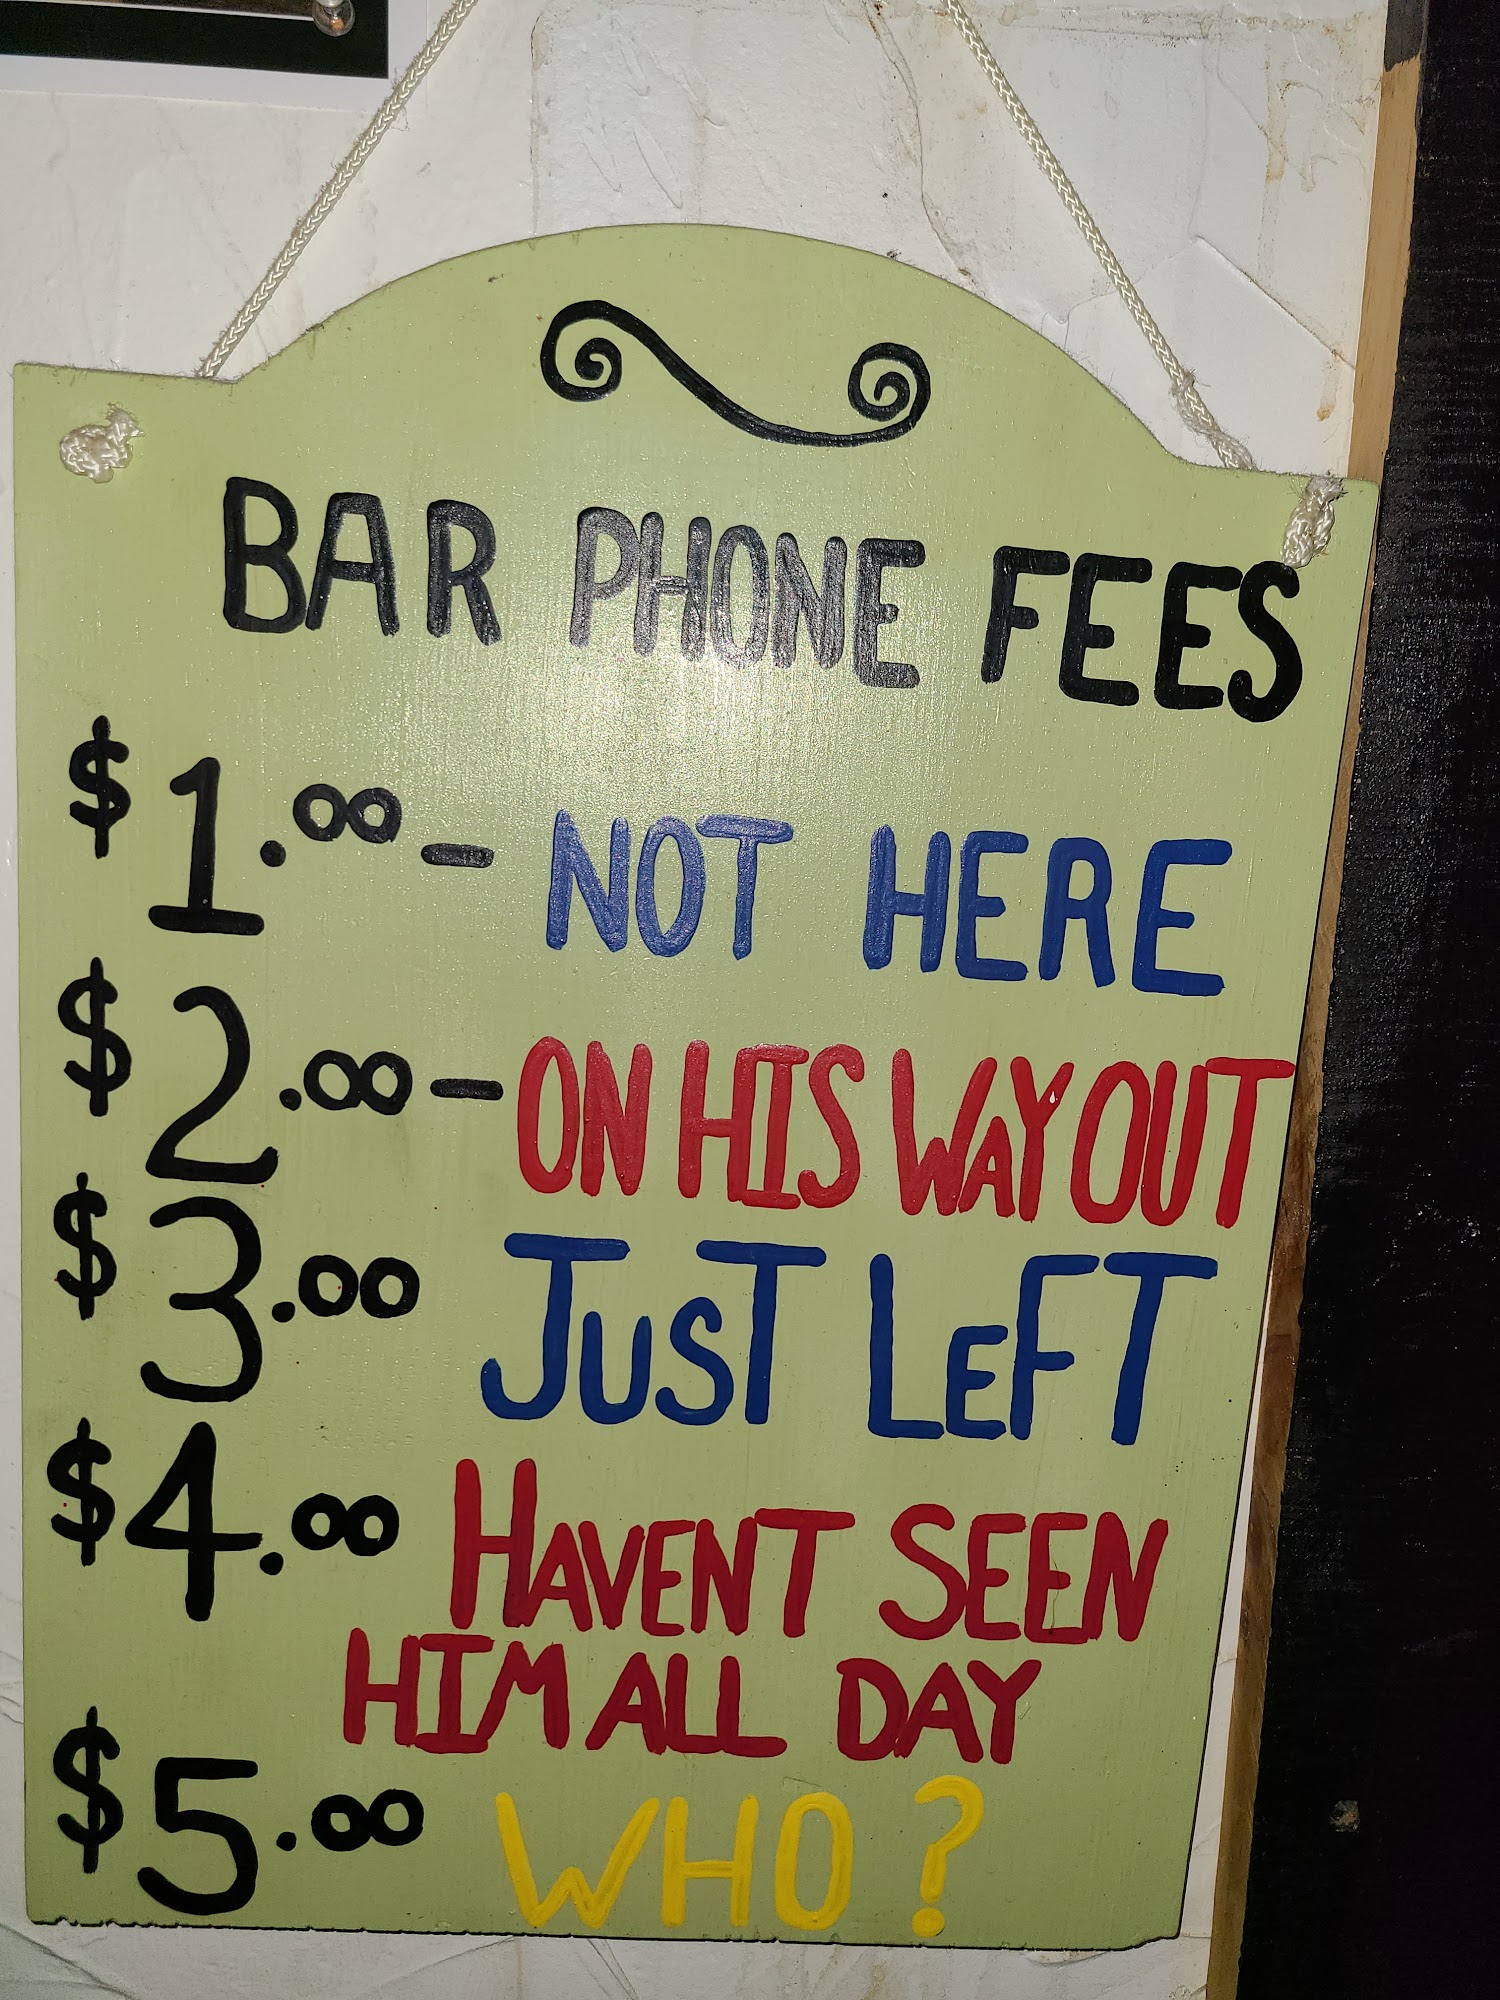 BAR PHONE FEES
$1.00 - NOT HERE
$2.00 - ON HIS WAY OUT
$3.00 JUST LEFT
$4.00 HAVENT SEEN
HIM ALL DAY
$5.00 WHO?